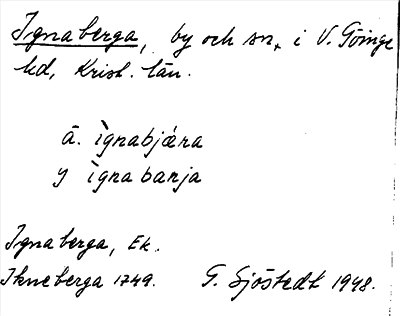 Ignaberga, by och sn, i V. Göinge
hd, Krist. län.
ä. ìgnabjæra
y ìgnabarja
Ignaberga, Ek.
Ikneberga 1749. G. Sjöstedt 1948.